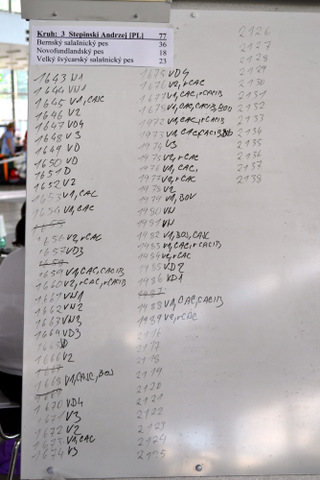 Kruh: 3 Stepinski Andrzej [PL] 77
Bernský salašnický pes 36
Novofundlandský pes 18
Velký švýcarský salašnický pes 23
1643 VN
1644 VN1
1645 V1, CAJC
1646 V2
1647 VD4
1648 V3
1649 VD
1650 VD
1651 D
1652 V2
1653 V1, CAC
1654 V1, CAC
1655
1656 V2, rCAC
1657 VD3
1658
1659 V1, CAC, CACIB
1660 V2, rCAC, rCACIB
1661 VN1
1662 VN2
1663 VN3
1664 VD3
1665 D
1666 V2
1667
1668 V1, CAJC, BOJ
1669
1670 VD4
1671 V3
1672 V2
1673 V1, CAC
1674 V3
1675 VD4
1976 V2, rCAC
1977 V1, CAC, rCACIB
1978 V1, CAC, CACIB, BOB
1972 V1, CAC, rCACIB
1973 V1, CAC, CACIB, BOB
1974 V3
1975 V2, rCAC
1976 V1, CAC
1977 V2, rCAC
1978 V2
1979 V1, BOV
1980 VN
1981 VN
1982 V1, BOJ, CAJC
1983 V1, CAC, rCACIB
1984 V2, rCAC
1985 VD2
1986 VD1
1987
1988 V1, CAC, CACIB
1989 V2, rCAC
2116
2117
2118
2119
2120
2121
2122
2123
2124
2125
2126
2127
2128
2129
2130
2131
2132
2133
2134
2135
2136
2137
2138